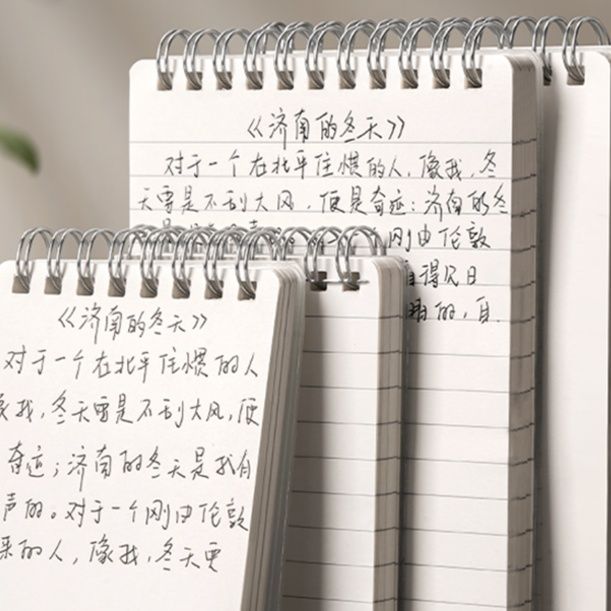 《济南的冬天》
对于一个在北平住惯的人，像我，冬
天要是不刮大风，便是奇迹；济南的冬
刚由伦敦
得见日
的，自
《济南的冬天》
对于一个在北平住惯的人
我，冬天要是不刮大风，便
奇迹；济南的冬天是没有
声的。对于一个刚由伦敦
来的人，像我，冬天要